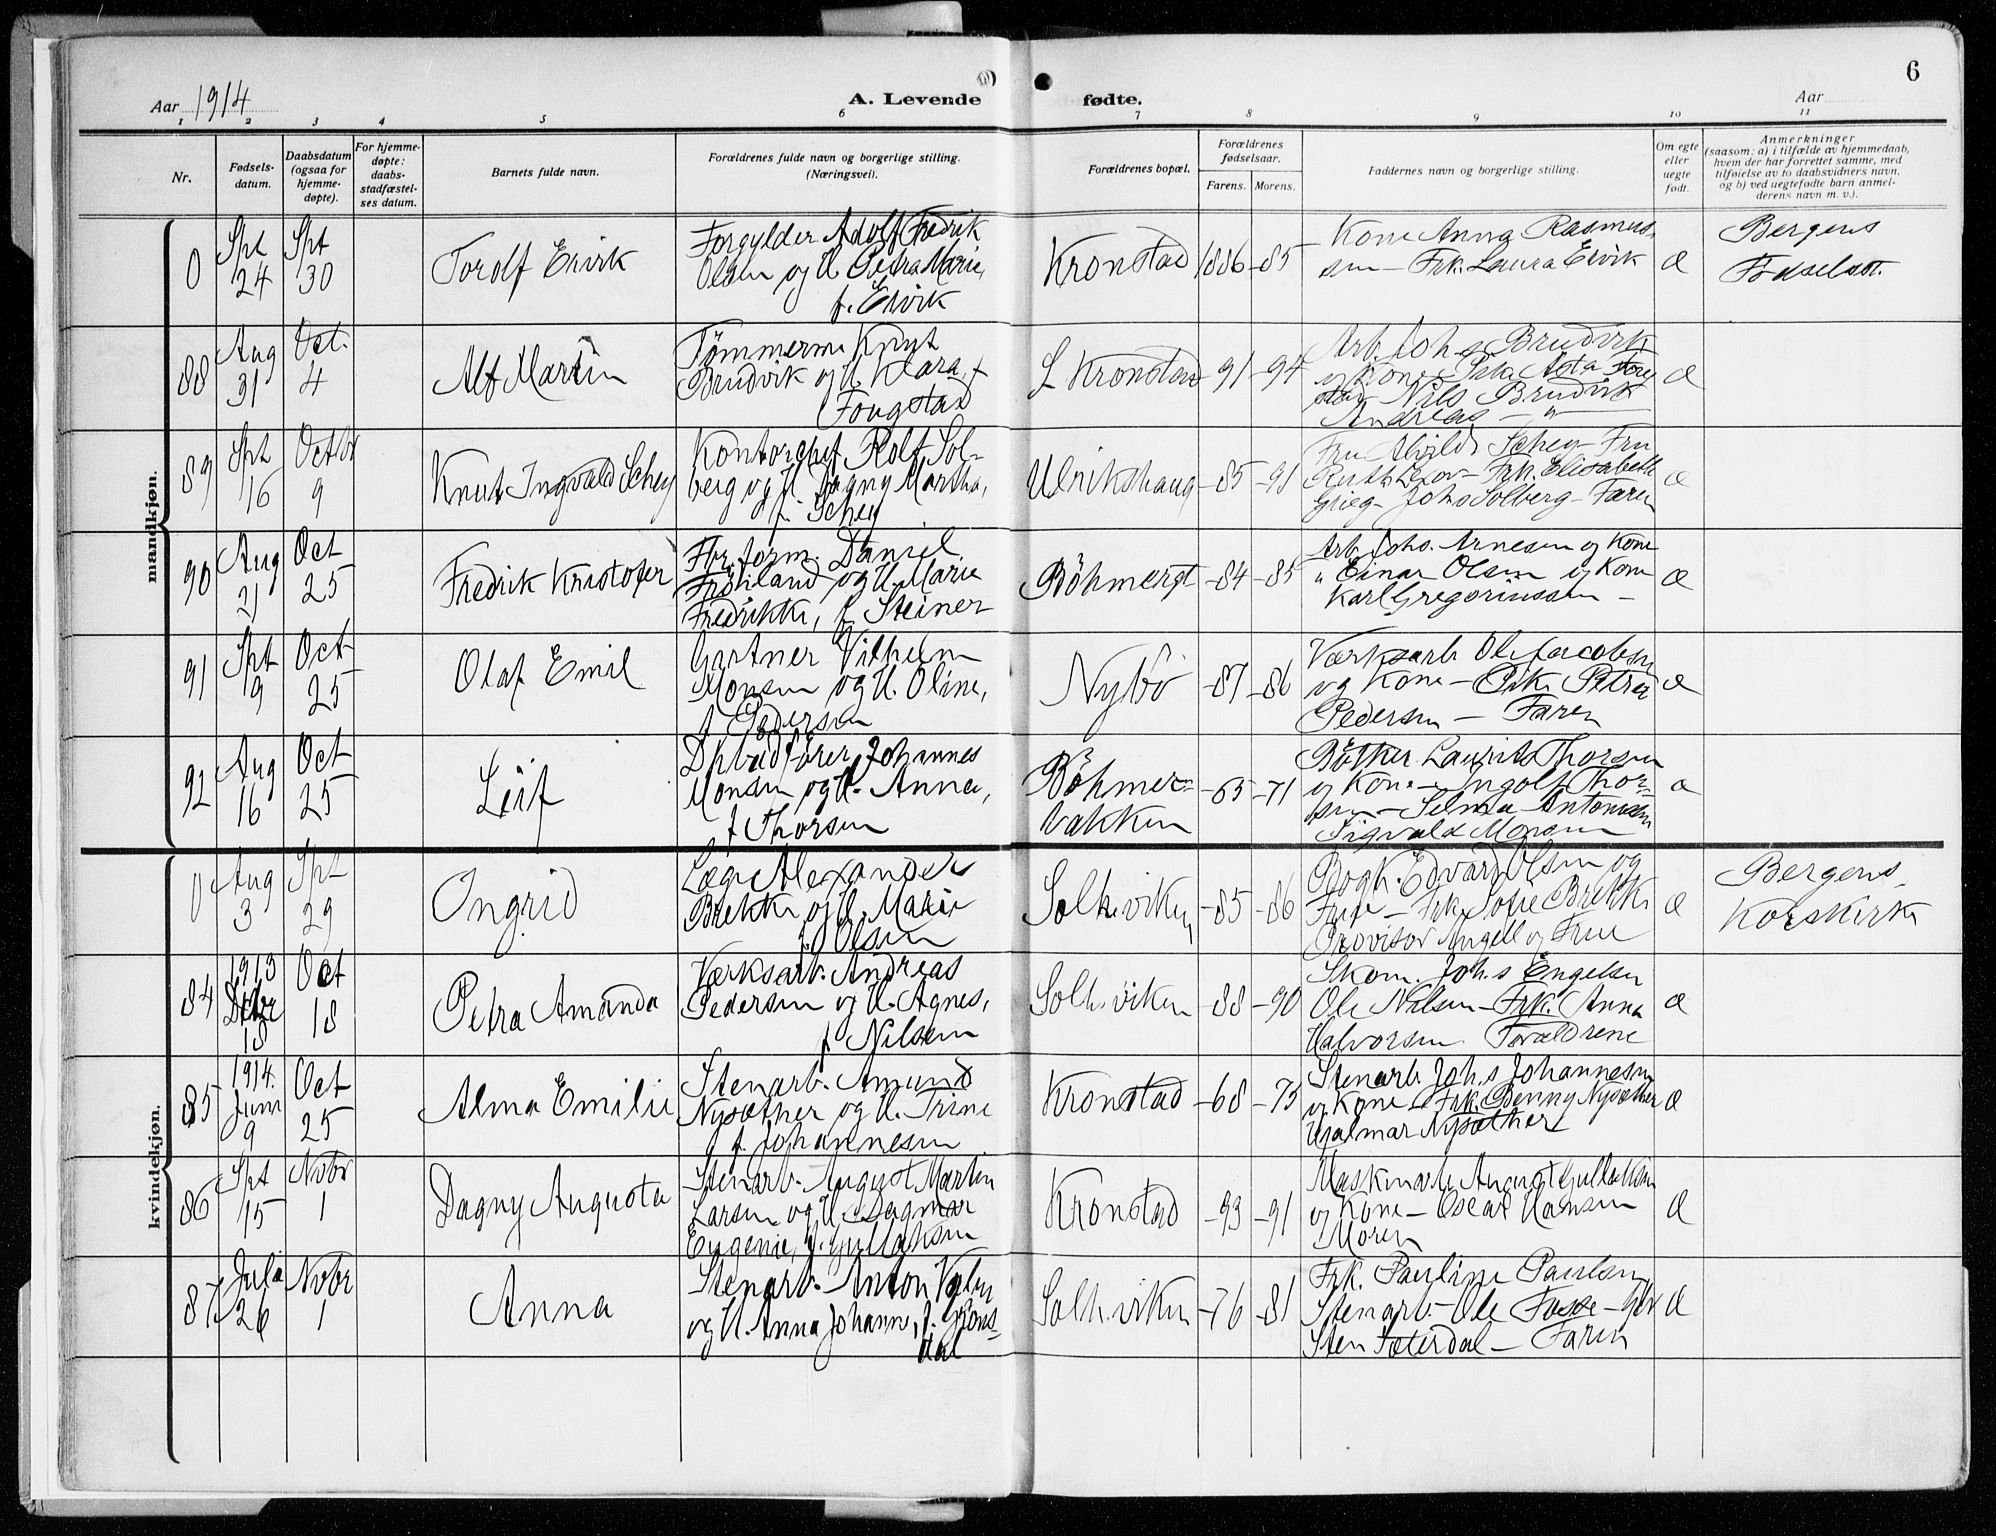 Aar 1914
A. Levende
fødte.
Aar
6
1 2 3 4 5 6 7 8 9 10 11
Nr.
Fødsels-
datum.
Daabsdatum
(ogsaa for
hjemme-
døpte).
For hjemme-
døpte:
daabs-
stadfæstel-
ses datum.
Barnets fulde navn.
Forældrenes fulde navn og borgerlige stilling.
(Næringsvei).
Forældrenes bopæl.
Forældrenes
fødselsaar.
Farens. Morens.
Faddernes navn og borgerlige stilling.
Om egte
eller
uegte
født.
Anmerkninger
(saasom: a) i tilfælde av hjemmedaab,
hvem der har forrettet samme, med
tilføielse av to daabsvidners navn,
og b) ved uegtefødte barn anmel-
derens navn m. v.).
mandkjøn.
0
Spt
24
Spt
30
Torolf Eivik
Forgylder Adolf Fredrik
Olsen og H. Petra Marie,
f. Eivik
Kronstad
1886 -85
Kone Anna Rasmus-
sen - Frk. Laura Eivik
æ
Bergens
Fødselsst.
88
Aug
31
Oct.
4
Alf Martin
Tømmerm. Knut
Brudvik og H. Klara, f
Fougstad
L Kronstad
-91 -94
Arb. Johs Brudvik
og Kone - Pike Asta Foug
stad - Nils Brudvik
Andreas - " -
æ
89
Spt
16
Octbr
9
Knut Ingvald Schey
Kontorchef Rolf Sol-
berg og H. Dagny Martha,
f. Schey
Ulrikshaug
-85 -91
Fru Alvilde Schey - Fru
Ruth Lexov - Frk. Elisabeth
Grieg - Johs Solberg - Faren
æ
90
Aug
21
Oct
25
Fredrik Kristofer
Forform. Daniel
Frøiland og H. Marie
Fredrikke, f Steiner
Böhmergt
-84 -85
Arb. Johs. Arnesen og Kone
" Einar Olsen og Kone
Karl Gregoriussen -
æ
91
Spt
9
Oct
25
Olaf Emil
Gartner Vilhelm
Monsen og H. Oline,
f Pedersen
Nybö
-87 -86
Værksarb Ole Jacobsen
og Kone - Pike Petrea
Pedersen - Faren
æ
92
Aug
16
Oct
25
Leif
Dpbaadfører Johannes
Monsen og H. Anna,
f Thorsen
Böhmer-
bakken
-65 -71
Bötker Laurits Thorsen
og Kone - Ingolf Thor-
sen - Selma Antonsen
Sigvald Monsen
æ
kvindekjøn.
0
Aug
3
Spt
29
Ingrid
Læge Alexander
Brekke og H. Marie
f. Olsen
Solheviken
-85 -86
Bogh. Edvard Olsen og
Frue - Frk. Sofie Brekke
Provisor Angell og Frue
æ
Bergens
Korskirke
84
1913
Dcbr
18
Oct
18
Petra Amanda
Værksarb. Andreas
Pedersen og H. Agnes,
f Nilsen
Solheviken
-88 -90
Skom. Johs Engelsen
Ole Nilsen - Frk. Anna
Halvorsen Forældrene
æ
85
1914.
Juni
9
Oct
25
Alma Emilie
Stenarb. Amund
Nysæther og H. Trine
f. Johannesen
Kronstad
-68 -75
Stenarb Johs Johannesen
og Kone - Frk. Benny Nysæther
Hjalmar Nysæther
æ
86
Spt
15
Novbr
1
Dagny Augusta
Stenarb. August Martin
Larsen og H. Dagmar
Eugenie, f. Gullaksen
Kronstad
-93 -91
Maskinarb August Gullaksen
og Kone - Oscar Hansen
Moren
æ
87
Juli
26
Novbr
1
Anna
Stenarb. Anton
og H. Anna Johanne, f. Gröns-
dal
Solheviken
-76 -81
Frk. Pauline Paulsen
Stenarb - Ole Fosse -
Sten Sæterdal - Faren
æ